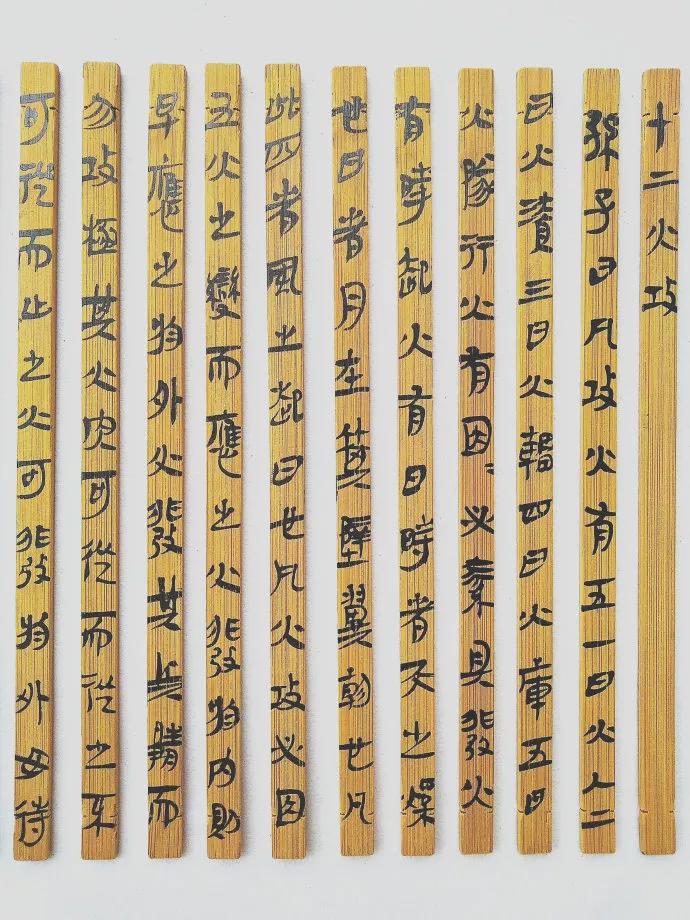 十二火攻
孫子曰凡攻火有五一曰火人二
曰火漬三曰火輜四曰火庫五曰
火隊行火有因〻必素具發火
有時起火有日時者天之燥
也日者月在箕壁翼軫也凡
此四者風之起日也凡火攻必因
五火之變而應之火發於內則
早應之於外火發其兵靜而
勿攻極其火央可從而從之不
可從而止之火可發於外毋待